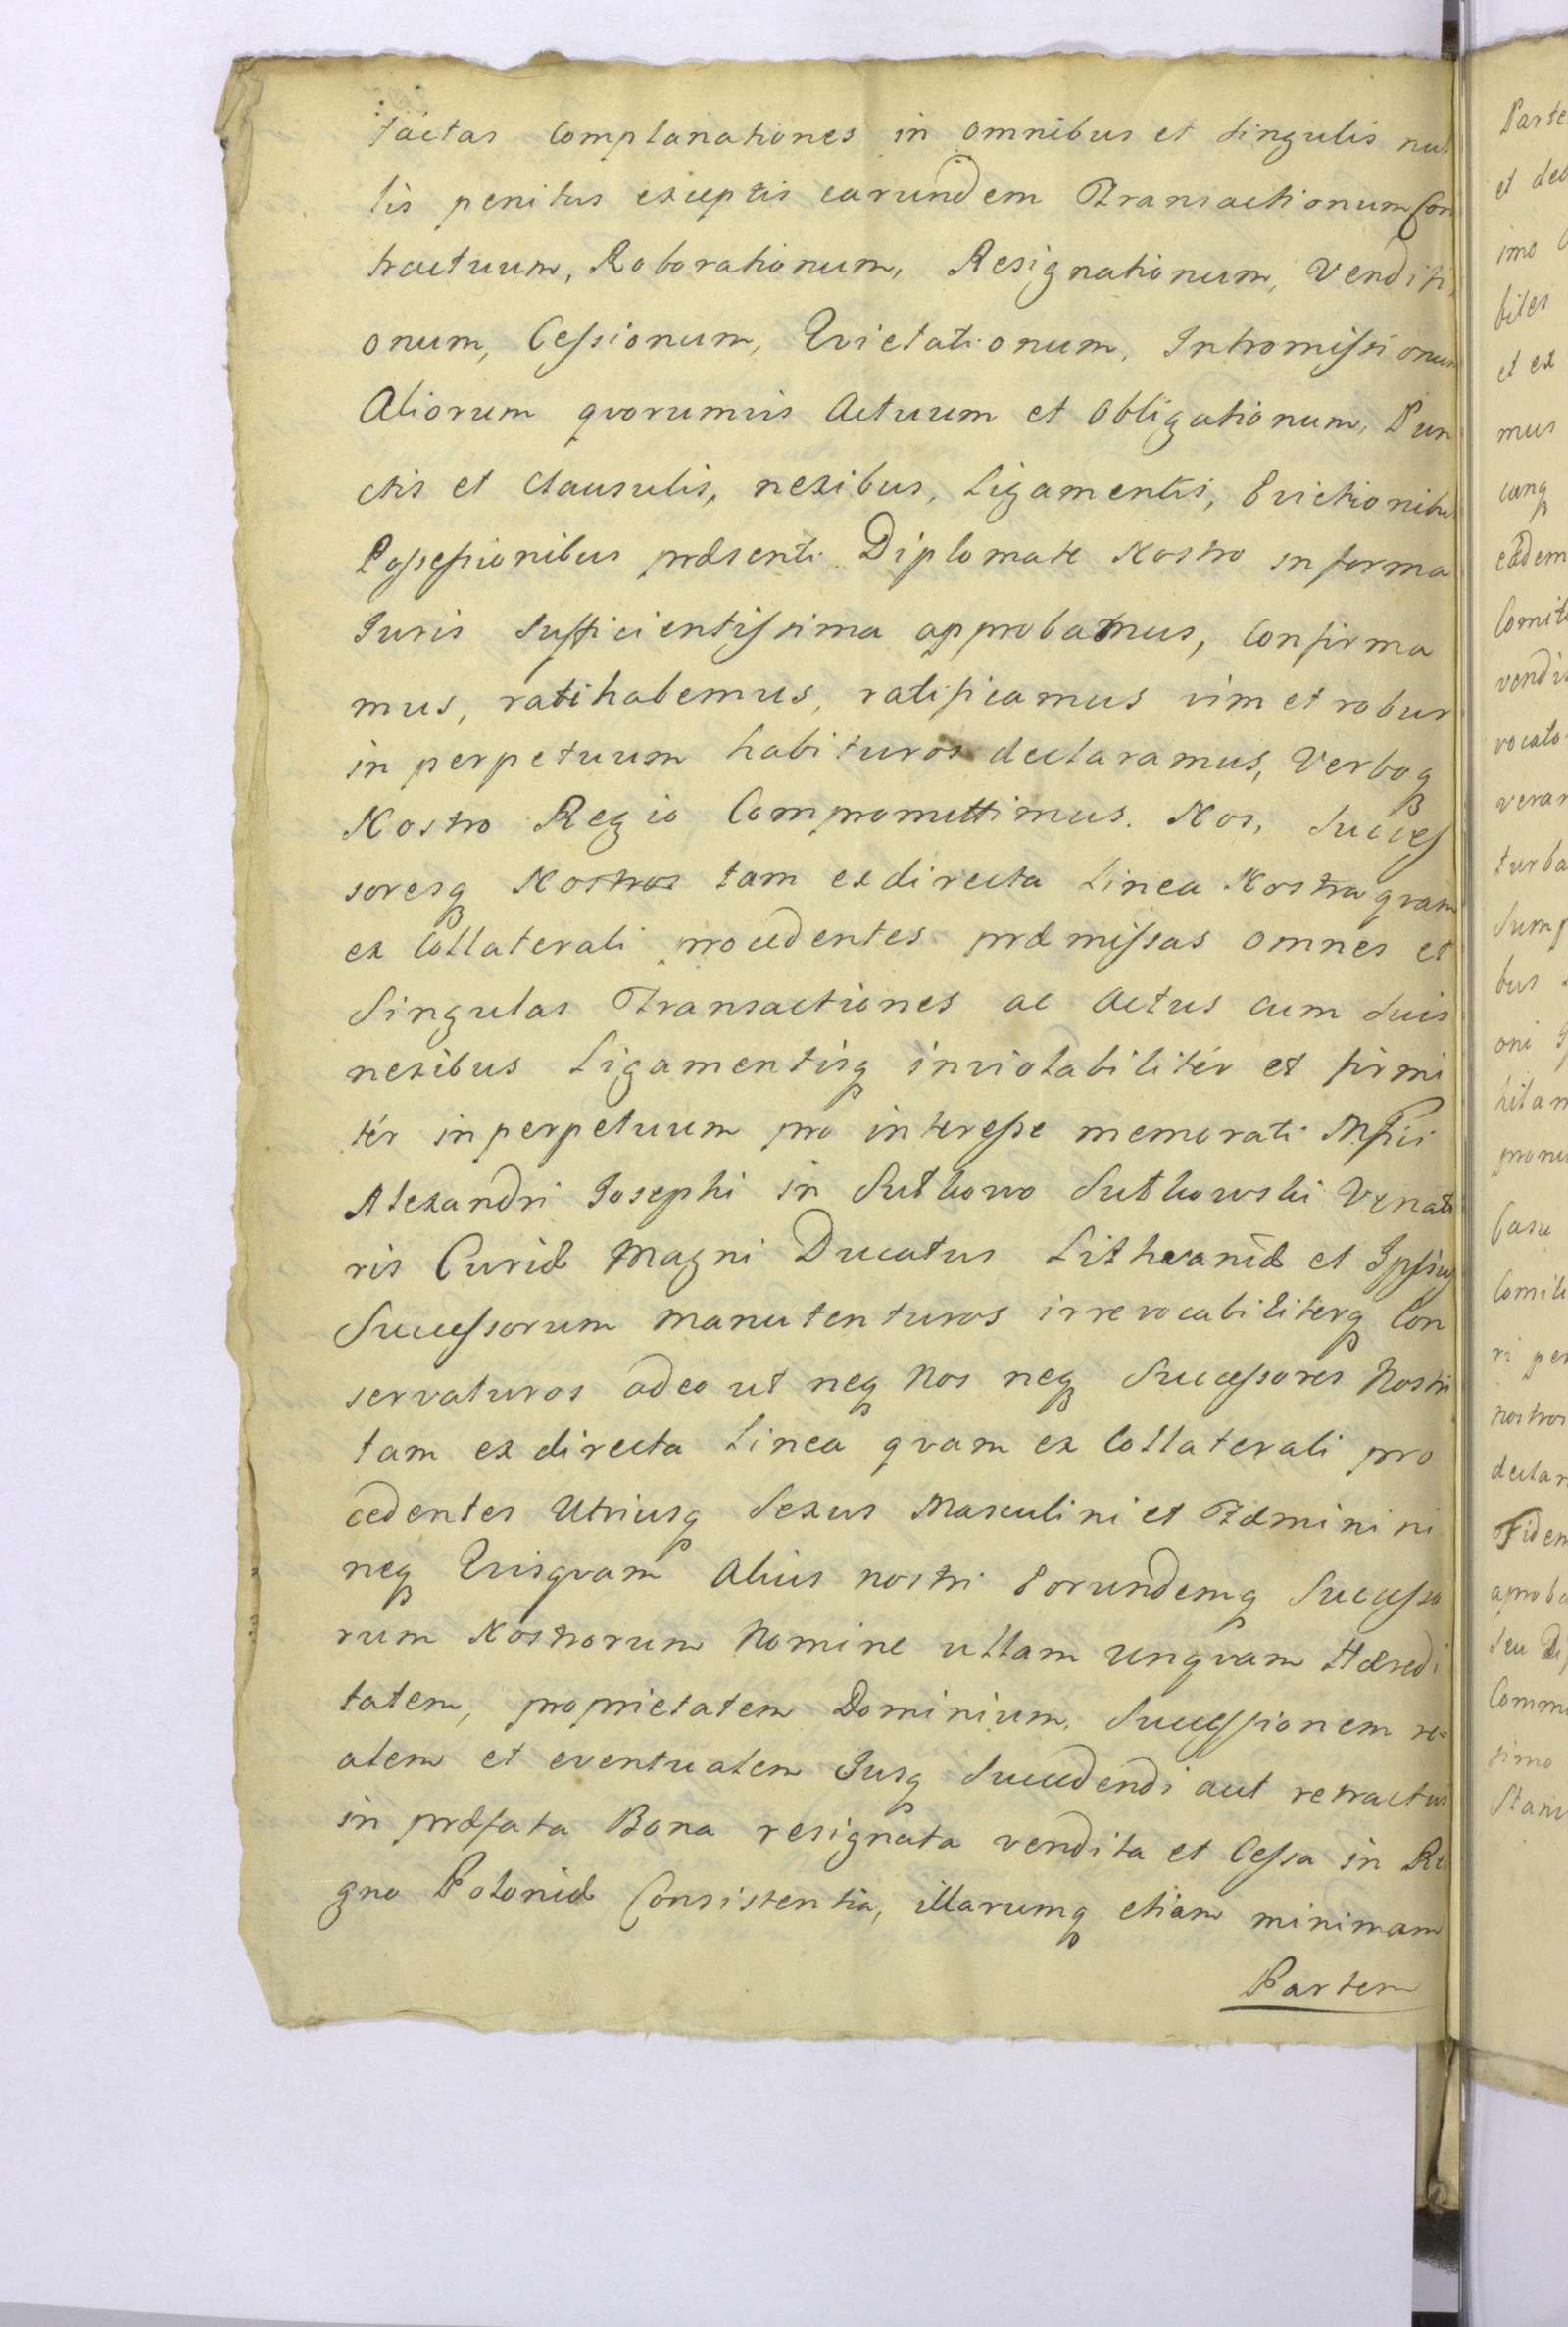 tactas Complanationes in omnibus et Singulis nul
lis penitus exceptis earundem Transactionum Con
tractuum, Roborationum, Resignationum, Venditi
onum, Ceſsionum, Qvietationum, Intromiſsionum
Aliorum qvorumvis Actuum et Obligationum, Pun
ctis et Clausulis, nexibus, Ligamentis, Evictionibus
Poſseſsionibus præsenti Diplomate Nostro in forma
Juris Sufficientiſsima approbamus, Confirma
mus, ratihabemus, ratificamus vim et robur
in perpetuum habituros declaramus, Verboq
Nostro Regio Compromittimus. Nos, Succeſ
soresq Nostros tam ex directa Linea Nostra qvam
ex Collaterali procedentes præmiſsas omnes et
Singulas Transactiones ac Actus cum Suis
nexibus Ligamentisq inviolabilitér et firmi
tér in perpetuum pro intereſse memorati Mfici
Alexandri Josephi in Sutkowo Sutkowski Venato
ris Curiæ Magni Ducatus Lithvaniæ et Ipſius
Succeſsorum manutenturos irrevocabiliterq Con
servaturos adeo ut neq Nos neq Succeſsores Nostri
tam ex directa Linea qvam ex Collaterali pro
cedentes Utriusq Sexus Masculini et Fæminini
neq Qvisqvam Alius nostri Eorundemq Succeſso
rum Nostrorum Nomine ullam unqvam Hæredi
tatem, proprietatem Dominium, Succeſsionem re=
alem et eventualem Jusq Succedendi aut retractus
in præfata Bona resignata vendita et Ceſsa in Re
gno Poloniæ Consistentia, illarumq etiam minimam
Partem
Parte
et deb
imo
biles
et ex
mus
cunq
eadem
Comit
vendi
vocato
veran
turba
Sump
bus
oni
hitam
promi
Casu
Comit
ri per
nostros
declar
Fidem
aproba
Seu Di
Comm
simo
Stani